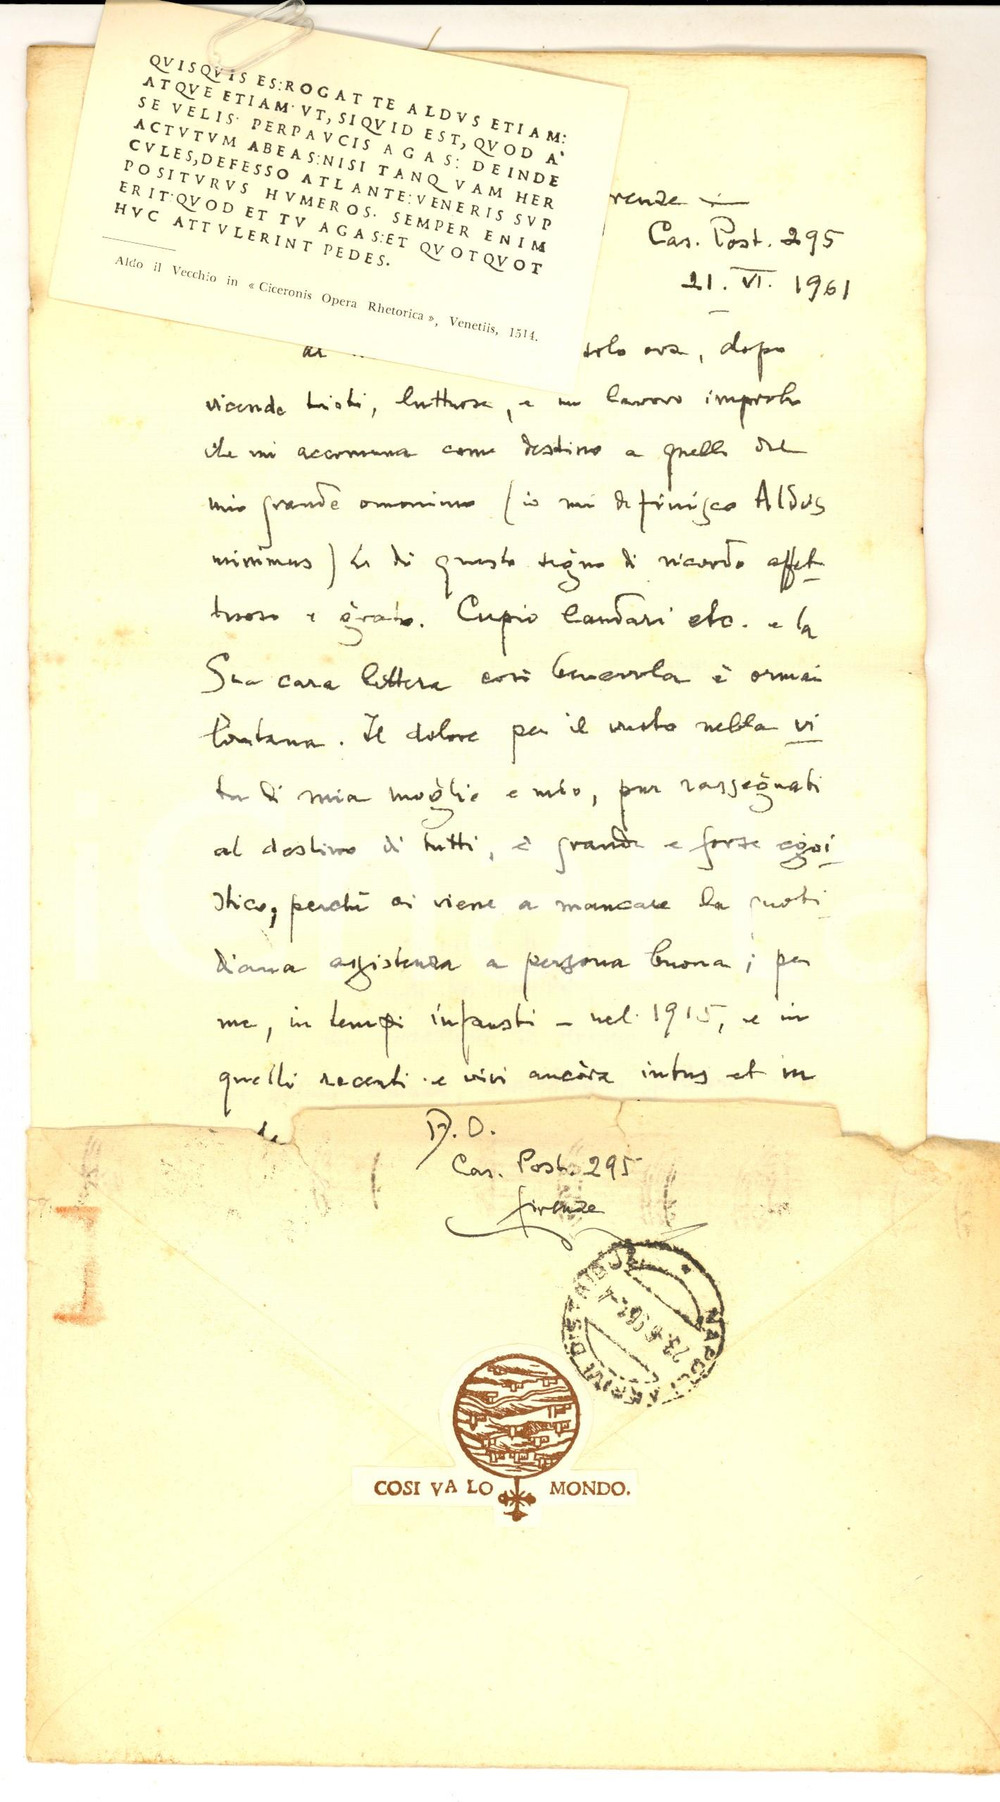 QVISQVIS ES:ROGAT TE ALDVS ETIAM:
ATQVE ETIAM VT, SIQVID EST, QVOD A'
SE VELIS PERPAVCIS AGAS: DEINDE
ACTVTVM ABEAS:NISI TANQVAM HER
CVLES,DEFESSO ATLANTE:VENERIS SVP
POSITVRVS HVMEROS. SEMPER ENIM
ERIT·QVOD ET TV AGAS:ET QVOTQVOT
HVC ATTVLERINT PEDES.
Aldo il Vecchio in « Ciceronis Opera Rhetorica », Venetiis, 1514.
renze
Cas. Post. 295
21. VI. 1961
solo ora, dopo
vicende tristi, luttuose, e un lavoro improbo
che mi accomuna come destino a quello del
mio grande omonimo (io mi definisco Aldus
minimus) Le di questo segno di ricordo affet-
tuoso e grato. Cupio laudari etc. e la
Sua cara lettera così benevola è ormai
lontana. Il dolore per il vuoto nella vi
ta di mia moglie e mio, pur rassegnati
al destino di tutti, è grande e forse egoi-
stico, perchè ci viene a mancare la quoti
diana assistenza a persona buona; per
me, in tempi infausti – nel 1915, e in
quelli recenti e vivi ancòra intus et in
A. O.
Cas. Post. 295
Firenze
NAPOLI
23.6.61
COSI VA LO MONDO.